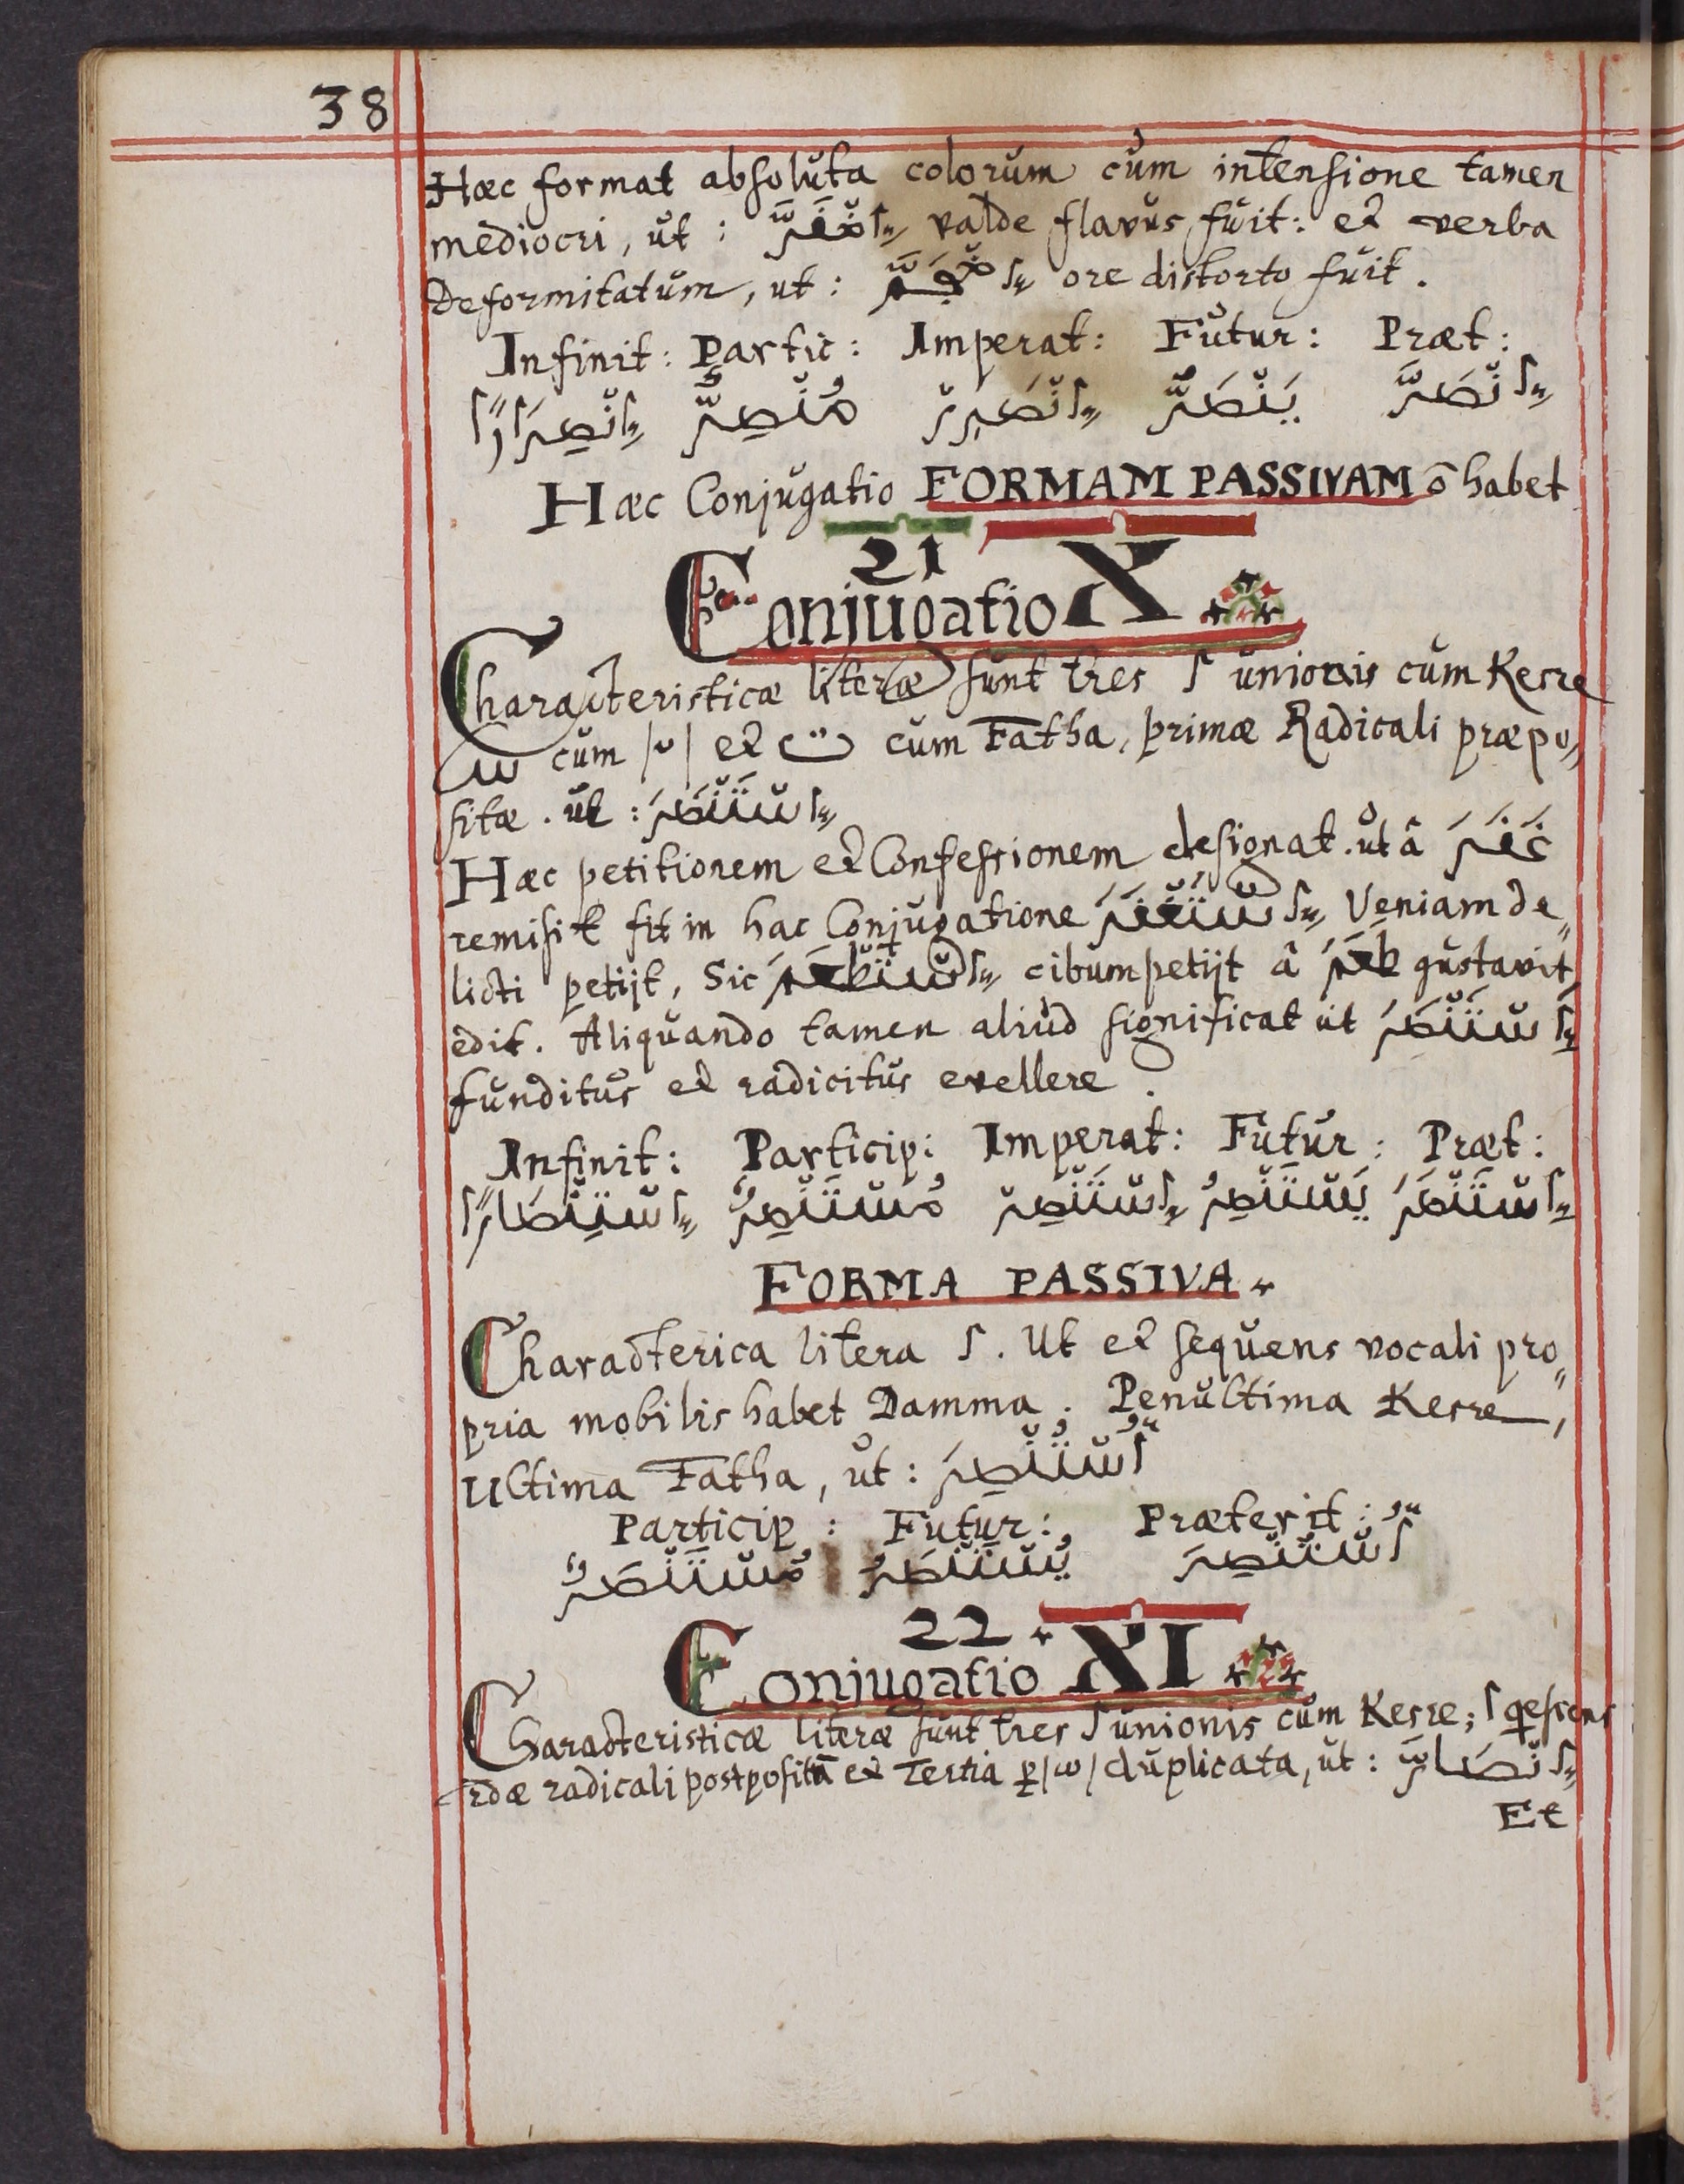 38
Hæc format absoluta colorum cum intensione tamen
mediocri, ut: اِصْفَرَّ valde flavus fuit: et verba
Deformitatum, ut: ore distorto fuit.
Infinit: Partic: Imperat: Futur: Præt:
اِنْصَرَّ يَنْصَرُّ اِنْصَرِرْ مُنْصِرٌّ اِنْصِرَارًا
Hæc Conjugatio FORMAM PASSIVAM ō habet
21
Conjugatio X
Characteristicæ literæ sunt tres ا unionis cum Kesre
س cum |ْ| et ت cum Fatha, primæ Radicali præpo„
sitæ. ut: اِسْتَنْصَرَ
Hæc petitionem et Confessionem designat. ut â غَفَرَ
remisit fit in hac Conjugatione اِسْتَغْفَرَ Veniam de„
licti petijt, Sic اِسْتَطْعَمَ cibum petijt â طَعَمَ gustavit,
edit. Aliquando tamen aliud significat ut اِسْتَنْصَرَ
funditus et radicitus evellere.
Infinit: Particip: Imperat: Futur: Præt:
اِسْتَنْصَرَ يَسْتَنْصِرُ اِسْتَنْصِرْ مُسْتَنْصِرٌ اِسْتِنْصَارًا
FORMA PASSIVA
Characterica litera ا. Ut et sequens vocali pro„
pria mobilis habet Damma. Penultima Kesre,
Ultima Fatha, ut: اُسْتُنْصِرَ
Particip: Futur: Præterit:
اُسْتُنْصِرَ يُسْتَنْصَرُ مُسْتَنْصَرٌ
22
Conjugatio XI
Characteristicæ literæ sunt tres ا unionis cum Kesre; ا qescens
2dæ radicali postposita et Tertia ꝑ |ّ| duplicata, ut: اِنْصَارَّ
Et